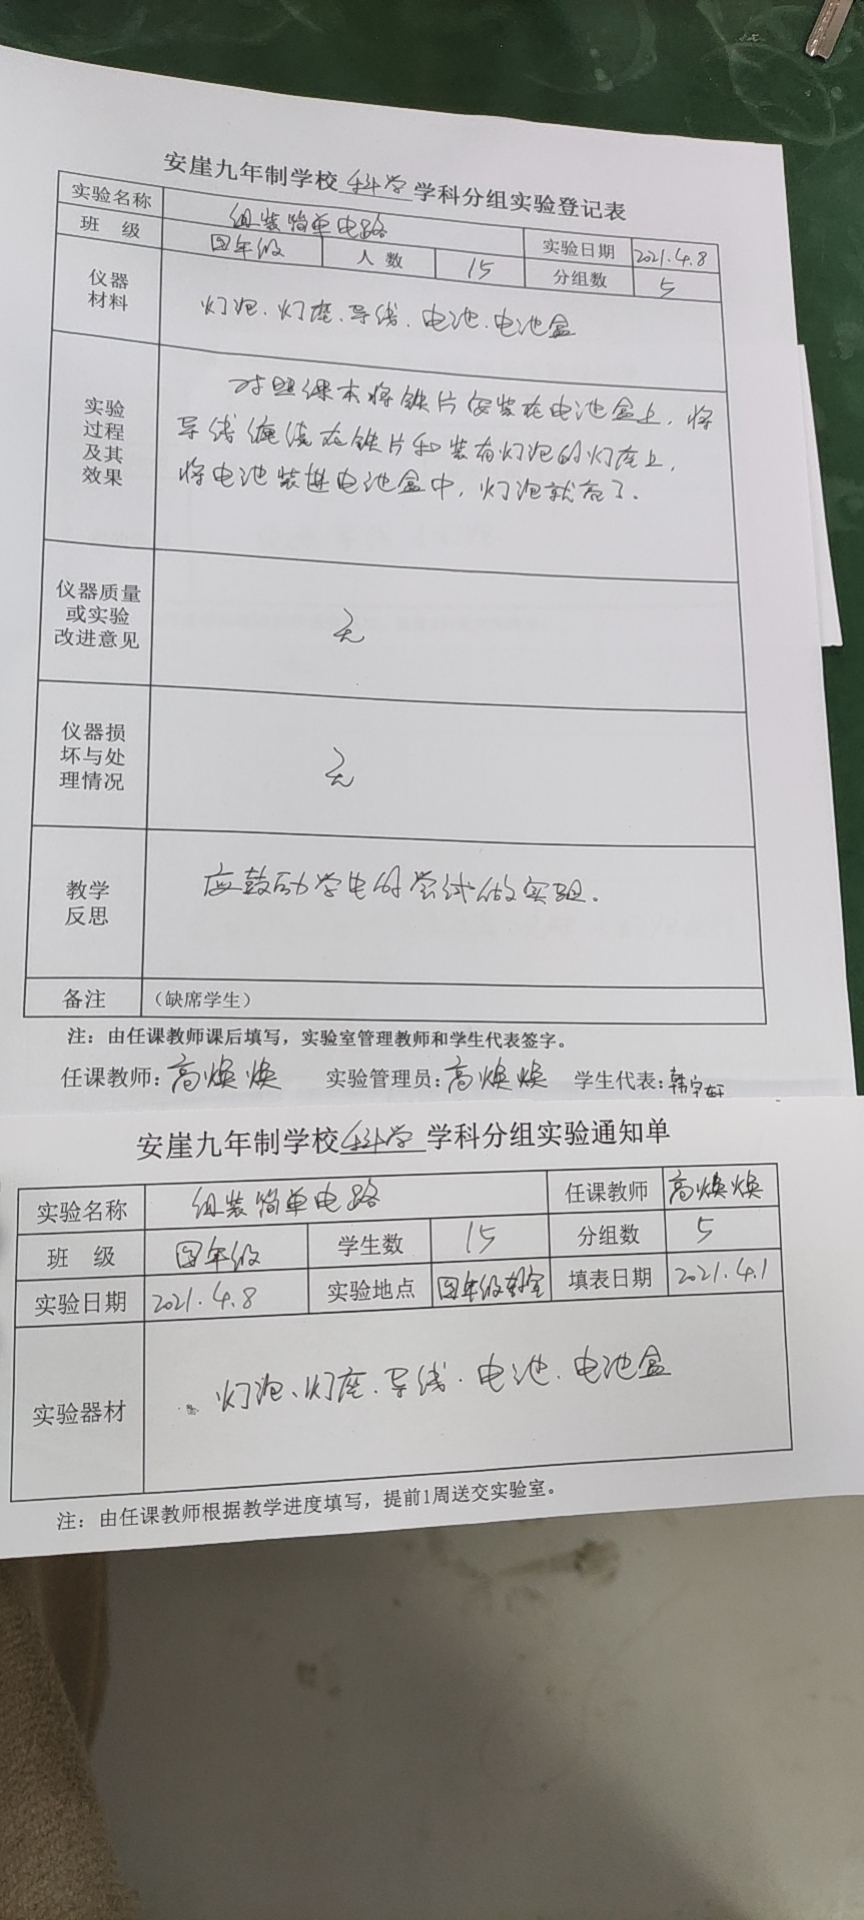 安崖九年制学校科学学科分组实验登记表
实验名称 组装简单电路 实验日期 2021.4.8
班 级 四年级 人数 15 分组数 5
仪器材料 灯泡、灯座、导线、电池、电池盒
实验过程及其效果
对照课本将铁片安装在电池盒上,将
导线缠绕在铁片和装有灯泡的灯座上,
将电池装进电池盒中,灯泡就亮了.
仪器质量或实验改进意见 无
仪器损坏与处理情况 无
教学反思 应鼓励学生的尝试做实验.
备注 (缺席学生)
注:由任课教师课后填写,实验室管理教师和学生代表签字。
任课教师:高焕焕 实验管理员:高焕焕 学生代表:韩宇轩
安崖九年制学校科学学科分组实验通知单
实验名称 组装简单电路 任课教师 高焕焕
班 级 四年级 学生数 15 分组数 5
实验日期 2021.4.8 实验地点 四年级教室 填表日期 2021.4.1
实验器材 灯泡、灯座、导线、电池、电池盒
注:由任课教师根据教学进度填写,提前1周送交实验室。